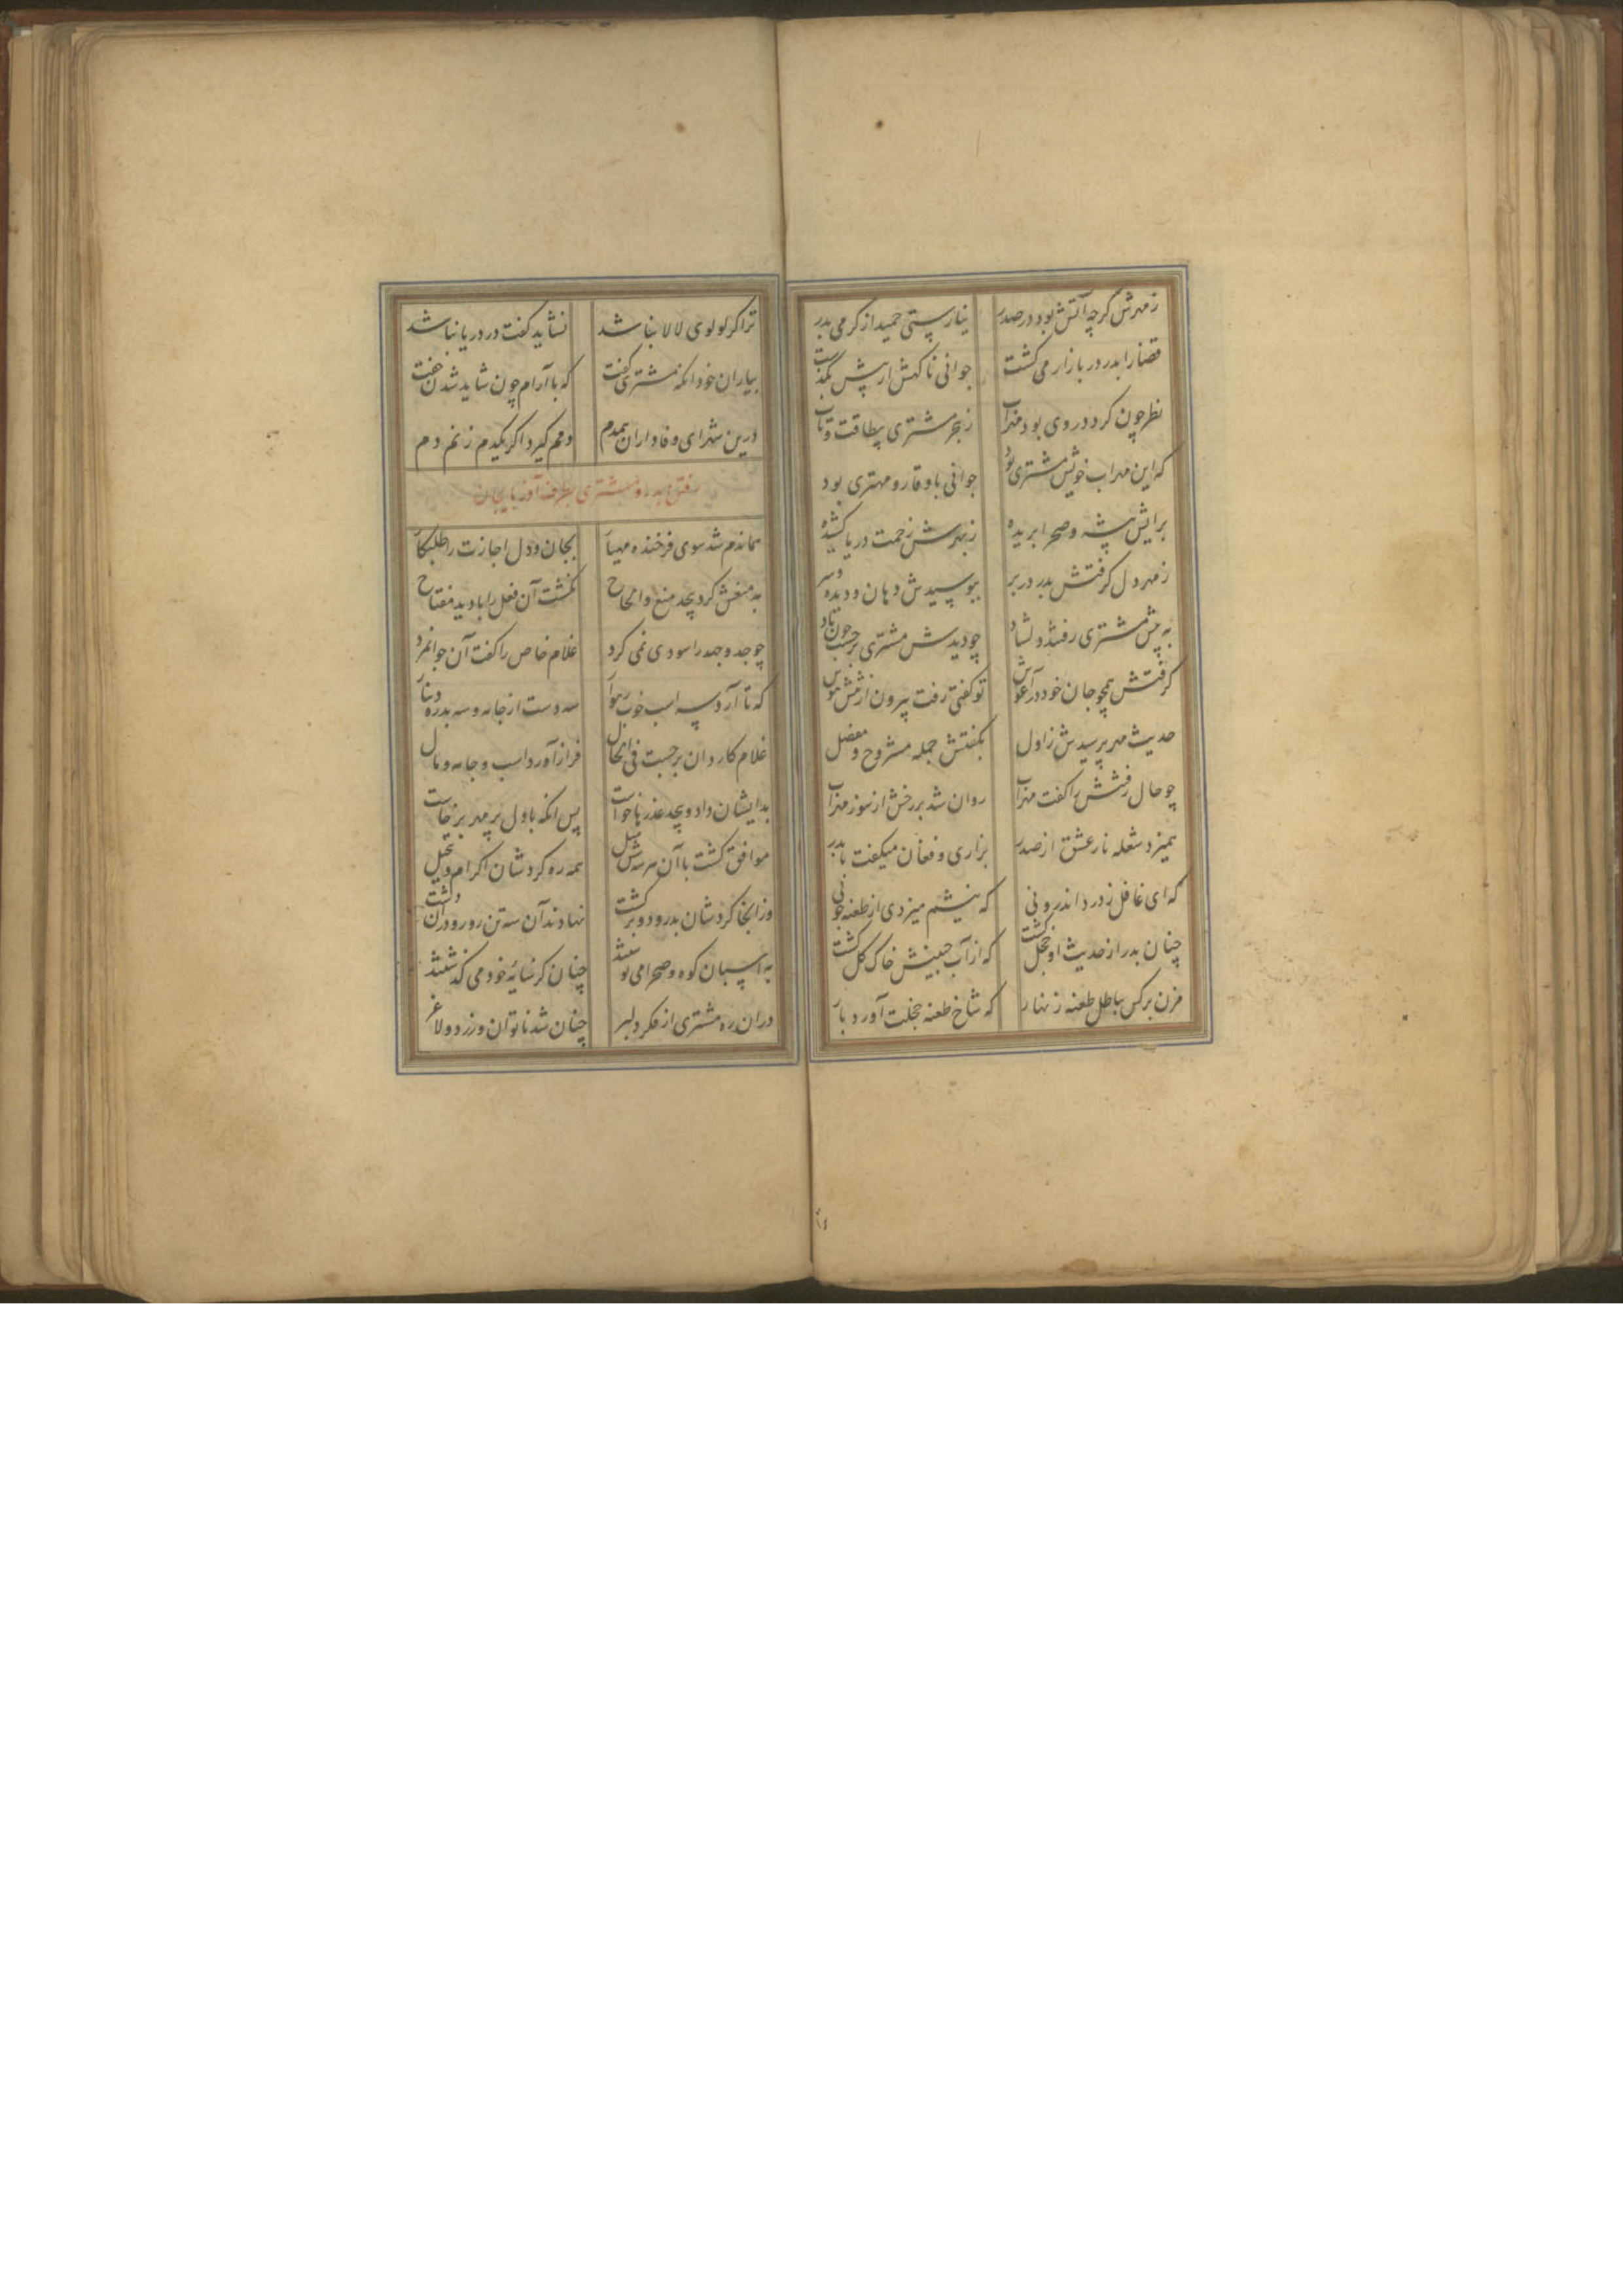 ز مهرش گرچه آتش بود در صدر نیارستی جمید از گرمی بدر
قضا را بدر در بازار می گشت جوانی ناگهش از پیش بگذشت
نظر چون کرد در وی بود مهراب ز هجر مشتری بیطاقت و تاب
که این مهراب خویش مشتری بود جوانی باوقار و مهتری بود
برایش بیشه و صحرا بریده ز بهرش زحمت دریا کشیده
ز مهر دل گرفتش بدر در بر ببوسیدش دهان و دیده و سر
به پیش مشتری رفتند دلشاد چو دیدش مشتری برجست چون باد
گرفتش همچو جان خود در آغوش تو گفتی رفت بیرون از تنش هوش
حدیث مهر پرسیدش ز اول بگفتش جمله مشروح و مفصل
چو حال رفتنش را گفت مهراب روان شد بر رخش از سوز مهر آب
همیزد شعله نار عشق از صدر بزاری و فغان میگفت با بدر
که ای غافل ز درد اندرونی که نیشم میزدی از طعنه جونی
چنان بدر از حدیث او خجل گشت که از آب جبینش خاک گل گشت
مزن بر کس بباطل طعنه زنهار که شاخ طعنه خجلت آورد بار
ترا گر لولوی لالا نباشد نشاید گفت در دریا نباشد
بیاران خود انگه مشتری گفت که با آرام چون شاید شدن خفت
درین شهر ای وفاداران همدم دمم گیرد اگر یکدم زنم دم
رفتن بدر و مشتری بطرف آذربایجان
هماندم شد سوی فرخنده مهیار بجان و دل اجازت را طلبکار
به منعش کرد بیحد منع و الحاح نگشت آن قفل را با دید مفتاح
چو جد و جهد را سودی نمی کرد غلام خاص را گفت آن جوانمرد
که تا آرد سه اسب خوب رهوار سه دست از جامه و سه بدره دینار
غلام کاردان برجست فی الحال فراز آورد اسب و جامه و مال
بدایشان داد و بیحد عذرها خواست پس انگه با دل پر مهر برخاست
موافق گشت با آن هر سه شش میل همه ره کردشان اکرام و تبجیل
وز اینجا کردشان بدرود و برگشت نهادند آن سه تن رو رو در آن دشت
به اسپان کوه و صحرا می نوشتند چنان کز سایه خود می گذشتند
در آن ره مشتری از فکر دلبر چنان شد ناتوان و زرد و لاغر